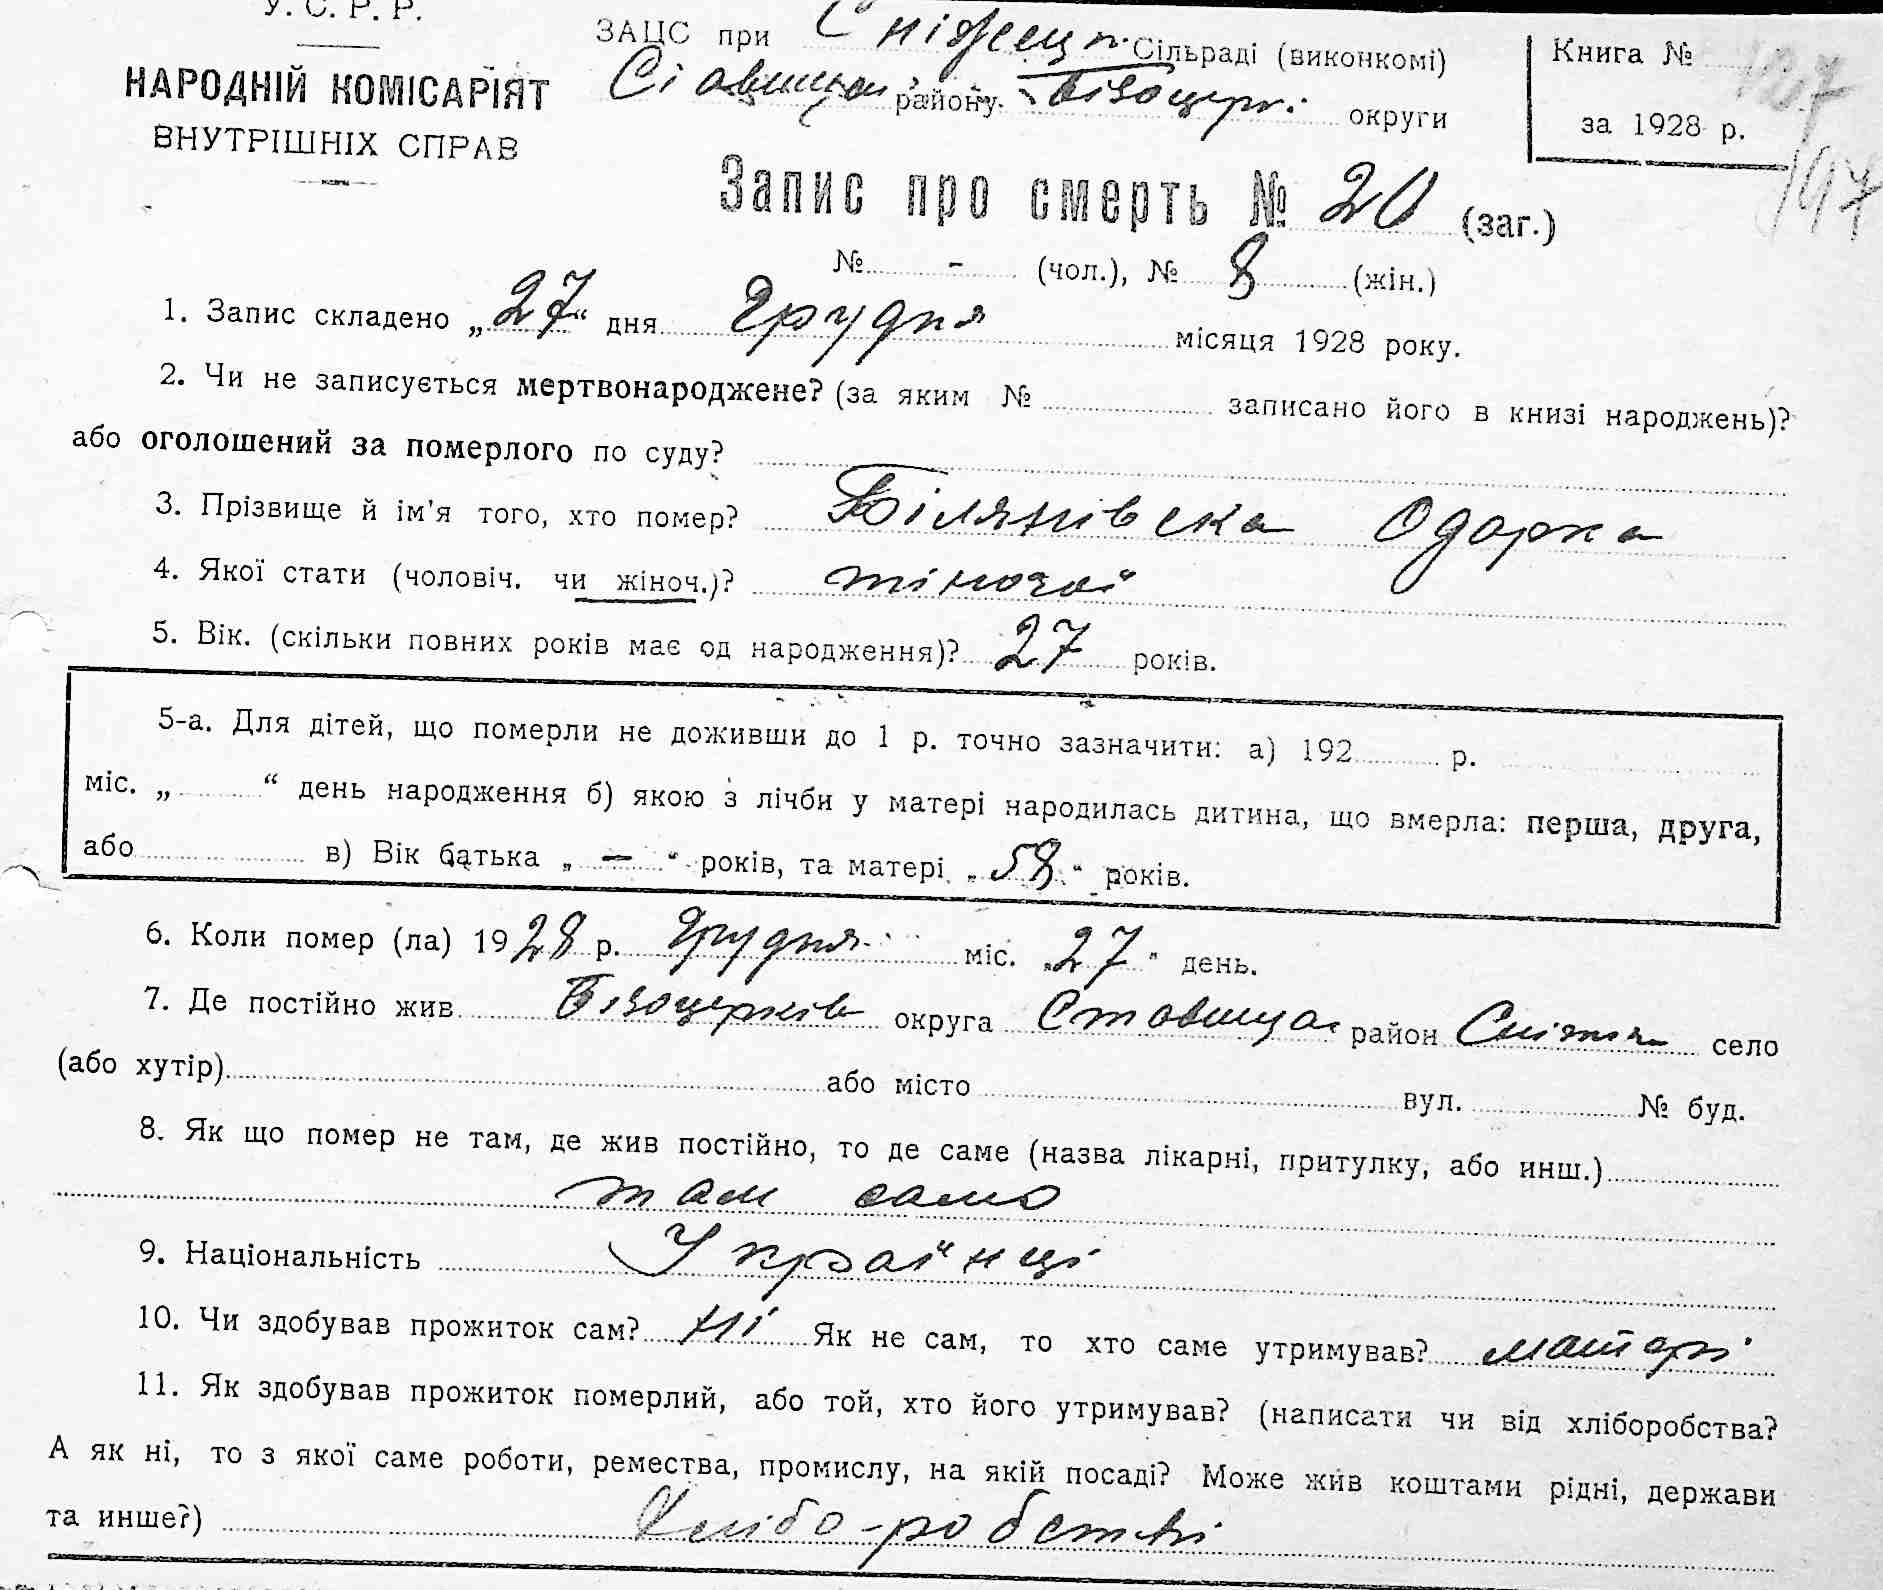 У. С. Р. Р.
НАРОДНІЙ КОМІСАРІЯТ
ВНУТРІШНІХ СПРАВ
ЗАЦС при Сніжец. Сільраді (виконкомі)
Ставищан. району Білоцерк. округи
Книга №
за 1928 р.
187
197
Запис про смерть № 20 (заг.)
№ - (чол.), № 8 (жін.)
1. Запис складено „27“ дня Грудня місяця 1928 року.
2. Чи не записується мертвонароджене? (за яким № записано його в книзі народжень)?
або оголошений за померлого по суду?
3. Прізвище й ім'я того, хто помер? Білянівска Одарка
4. Якої стати (чоловіч. чи жіноч.)? жіночої
5. Вік. (скільки повних років має од народження)? 27 років.
5-а. Для дітей, що померли не доживши до 1 р. точно зазначити: а) 192 р.
міс. „ “ день народження б) якою з лічби у матері народилась дитина, що вмерла: перша, друга,
або в) Вік батька „ — “ років, та матері „58“ років.
6. Коли помер (ла) 1928 р. Грудня міс. „27“ день.
7. Де постійно жив Білоцерків округа Ставища район село
(або хутір) або місто вул. № буд.
8. Як що помер не там, де жив постійно, то де саме (назва лікарні, притулку, або инш.)
там само
9. Національність Українці
10. Чи здобував прожиток сам? Ні Як не сам, то хто саме утримував? матері
11. Як здобував прожиток померлий, або той, хто його утримував? (написати чи від хліборобства?
А як ні, то з якої саме роботи, ремества, промислу, на якій посаді? Може жив коштами рідні, держави
та инше?) Хлібо-робстві